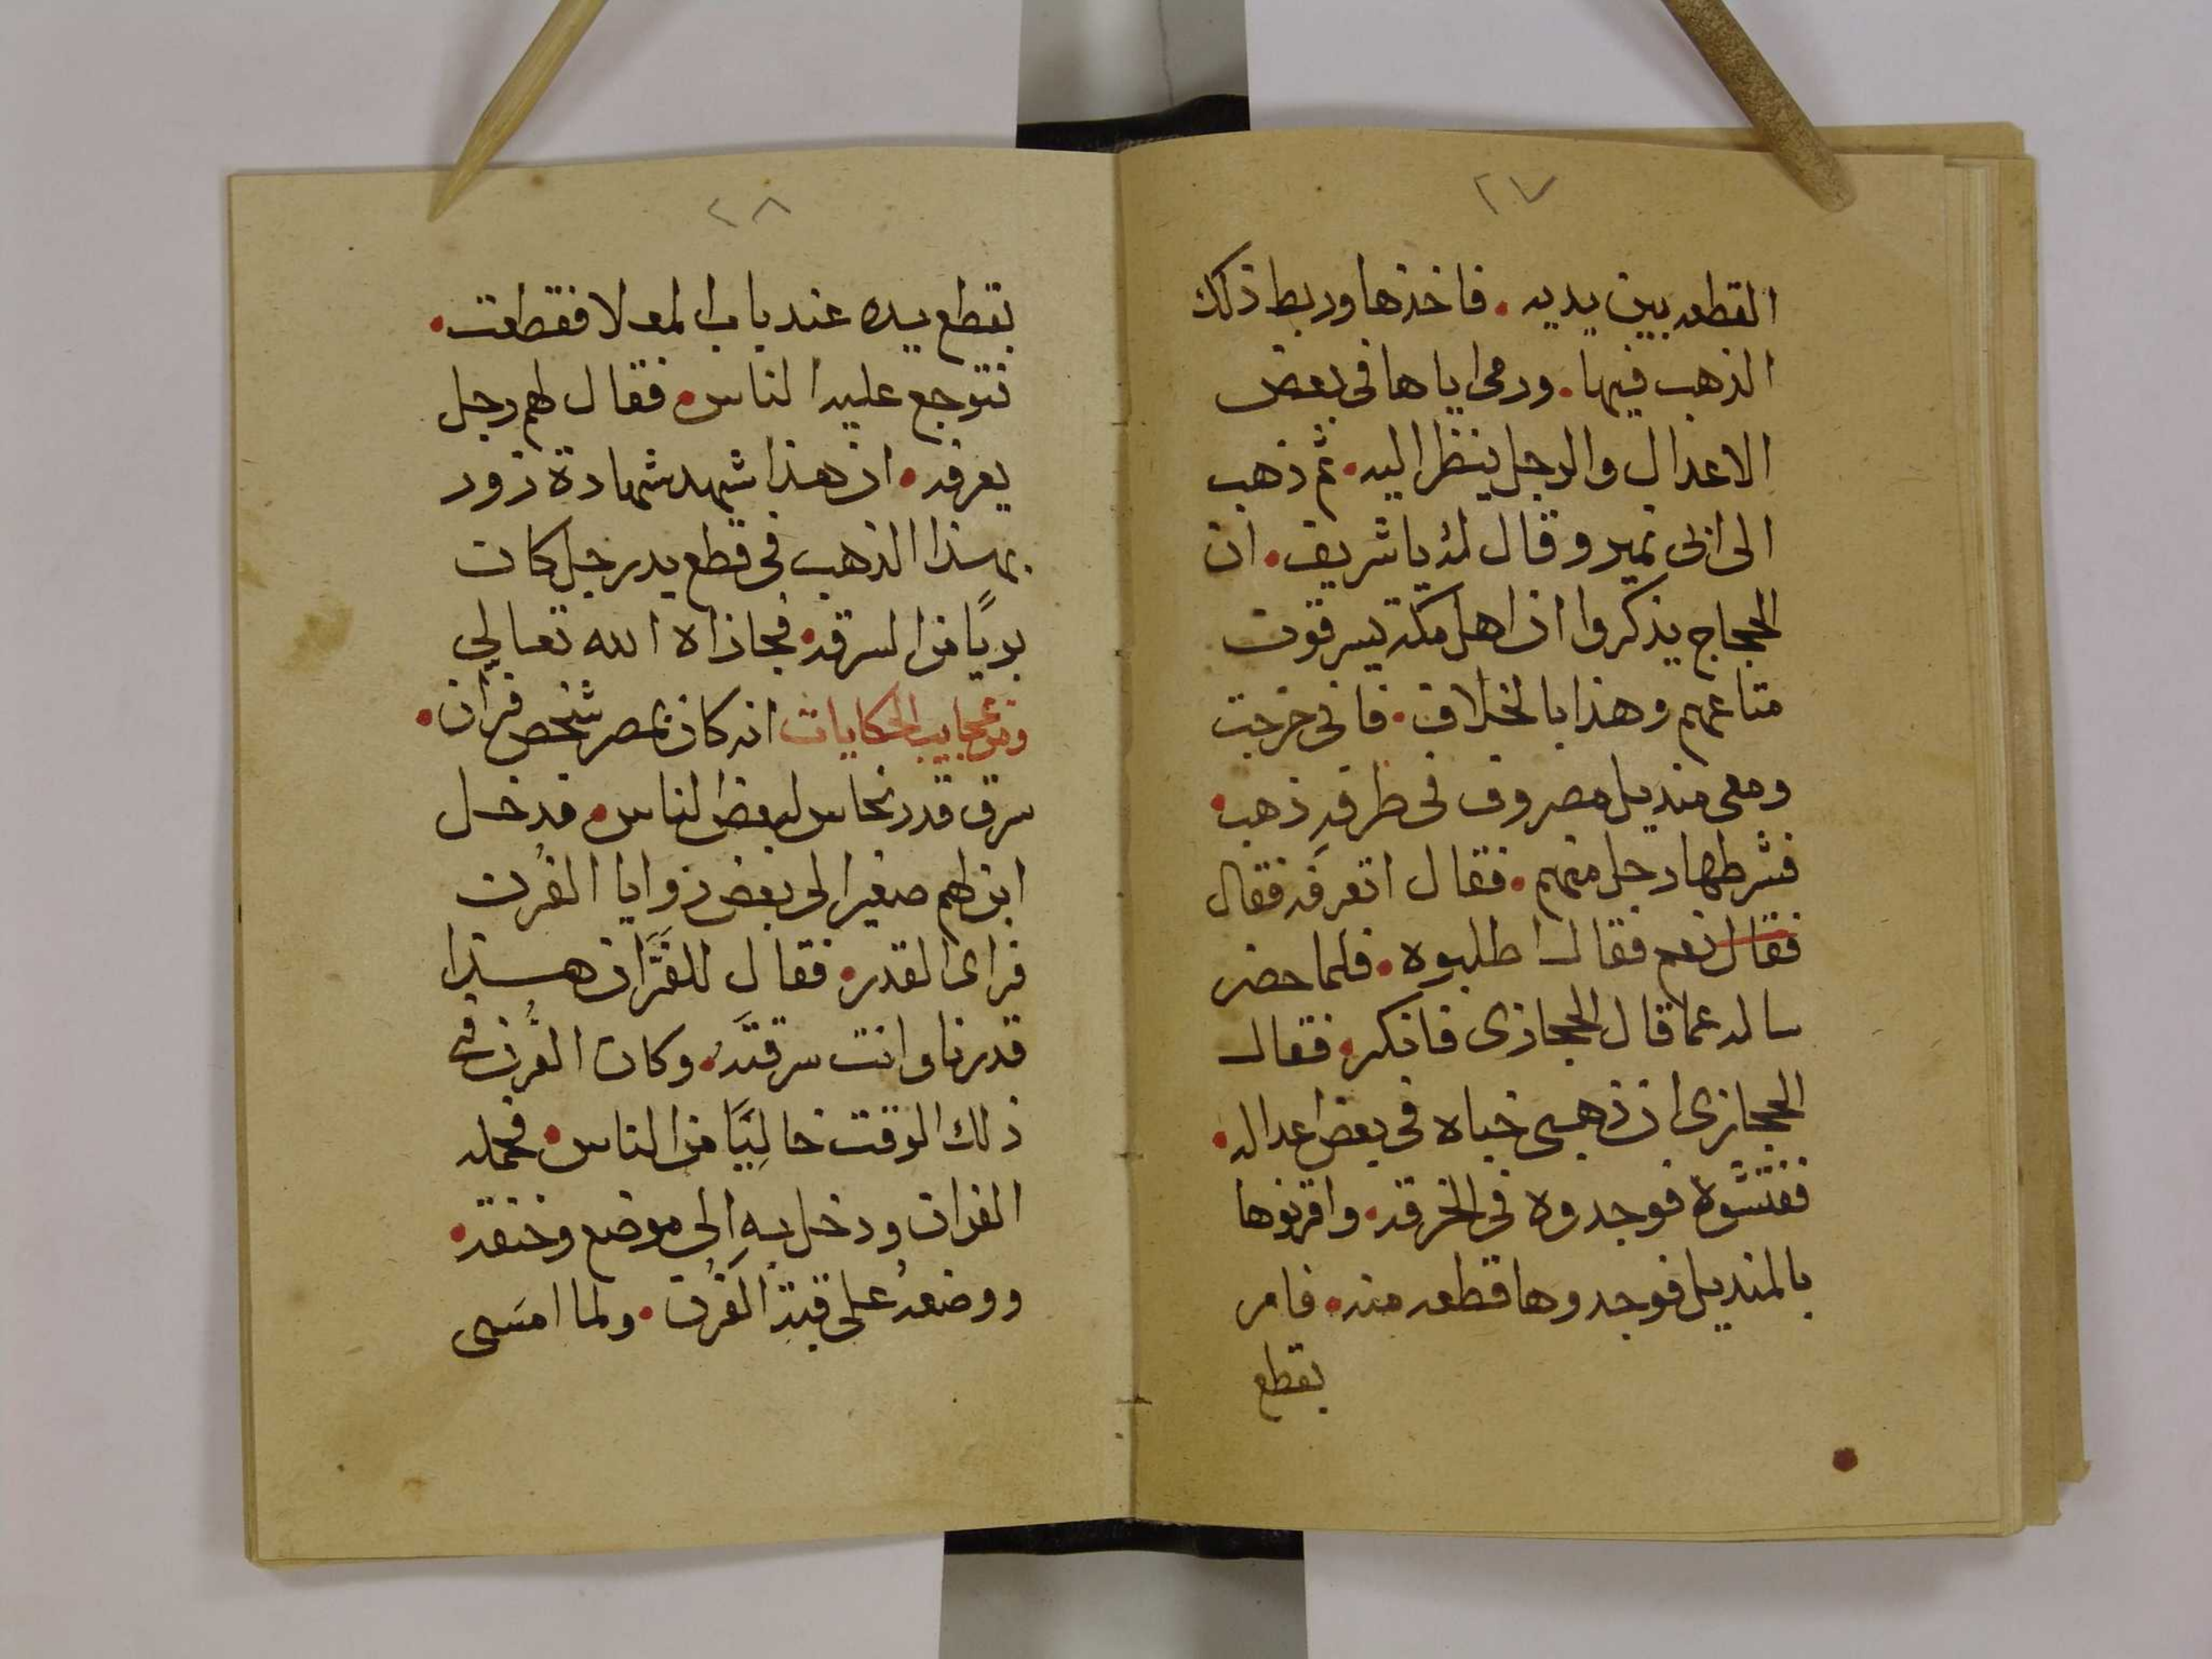 ٢٧
القطعه بين يديه . فاخذها وربط ذلك
الذهب فيها . ورمى اياها فى بعض
الاعدال والرجل ينظر اليه . ثم ذهب
الى ابى نمير وقال له يا شريف . ان
الحجاج يذكروا ان اهل مكة يسرقون
متاعهم وهذا بالخلاف . فانى خرجت
ومعى منديل مصروف فى طرفهِ ذهب .
فشرطها رجل منهم . فقال اتعرفه فقال
فقال نعم فقال اطلبوه . فلما حضر
ساله عما قال الحجازى فانكر . فقال
الحجازى ان ذهبى خباه فى بعض اعداله .
ففتشوهُ فوجدوه فى الخرقه . واقرنوها
بالمنديل فوجدوها قطعه منه . فامر
بقطع
٢٨
بقطع يده عند باب المعلا فقطعت .
فتوجع عليه الناس . فقال لهم رجل
يعرفه . ان هذا شهد شهادة زور
بهذا الذهب فى قطع يد رجل كان
بريًا من السرقه . فجازاه الله تعالى
ومن عجايب الحكايات انه كان بمصر شخص فران .
سرق قدر نحاس لبعض الناس . فدخل
ابن لهم صغير الى بعض زوايا الفُرن
فراى القدر . فقال للفَرَّان هذا
قدرنا وانت سرقتَهُ . وكان الفرن فى
ذلك الوقت خاليًا من الناس . فحمله
الفران ودخل بهِ الى موضع وخنقه .
ووضعهُ على قبة الفُرن . ولما امسَى